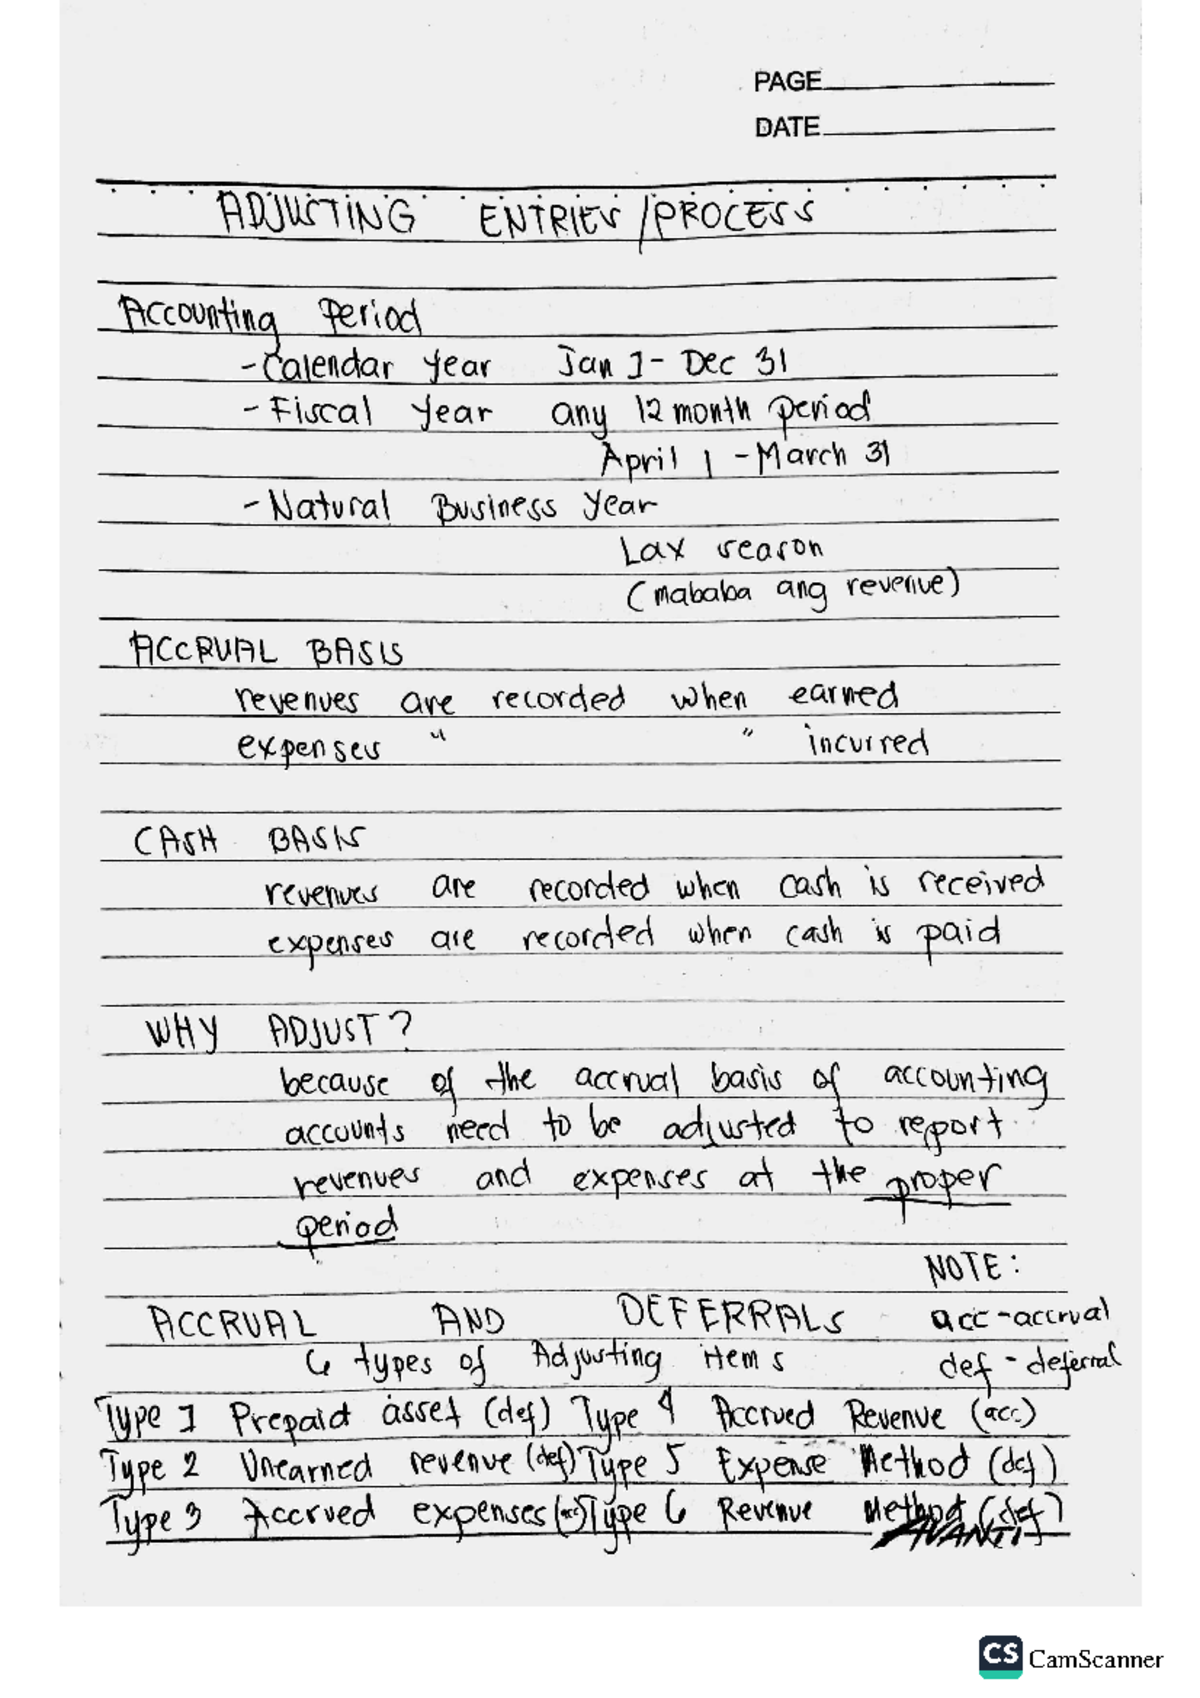 PAGE
DATE
ADJUSTING ENTRIES/PROCESS
Accounting Period
- Calendar year Jan 1 - Dec 31
- Fiscal year any 12 month period
April 1 - March 31
- Natural Business year
Lax season
(mababa ang revenue)
ACCRUAL BASIS
revenues are recorded when earned
expenses " " incurred
CASH BASIS
revenues are recorded when cash is received
expenses are recorded when cash is paid
WHY ADJUST?
because of the accrual basis of accounting
accounts need to be adjusted to report
revenues and expenses at the proper
period
NOTE:
ACCRUAL AND DEFERRALS acc - accrual
6 types of Adjusting items def - deferral
Type 1 Prepaid asset (def) Type 4 Accrued Revenue (acc)
Type 2 Unearned revenue (def) Type 5 Expense Method (def)
Type 3 Accrued expenses (acc) Type 6 Revenue Method (def)
AVANTI
CS CamScanner